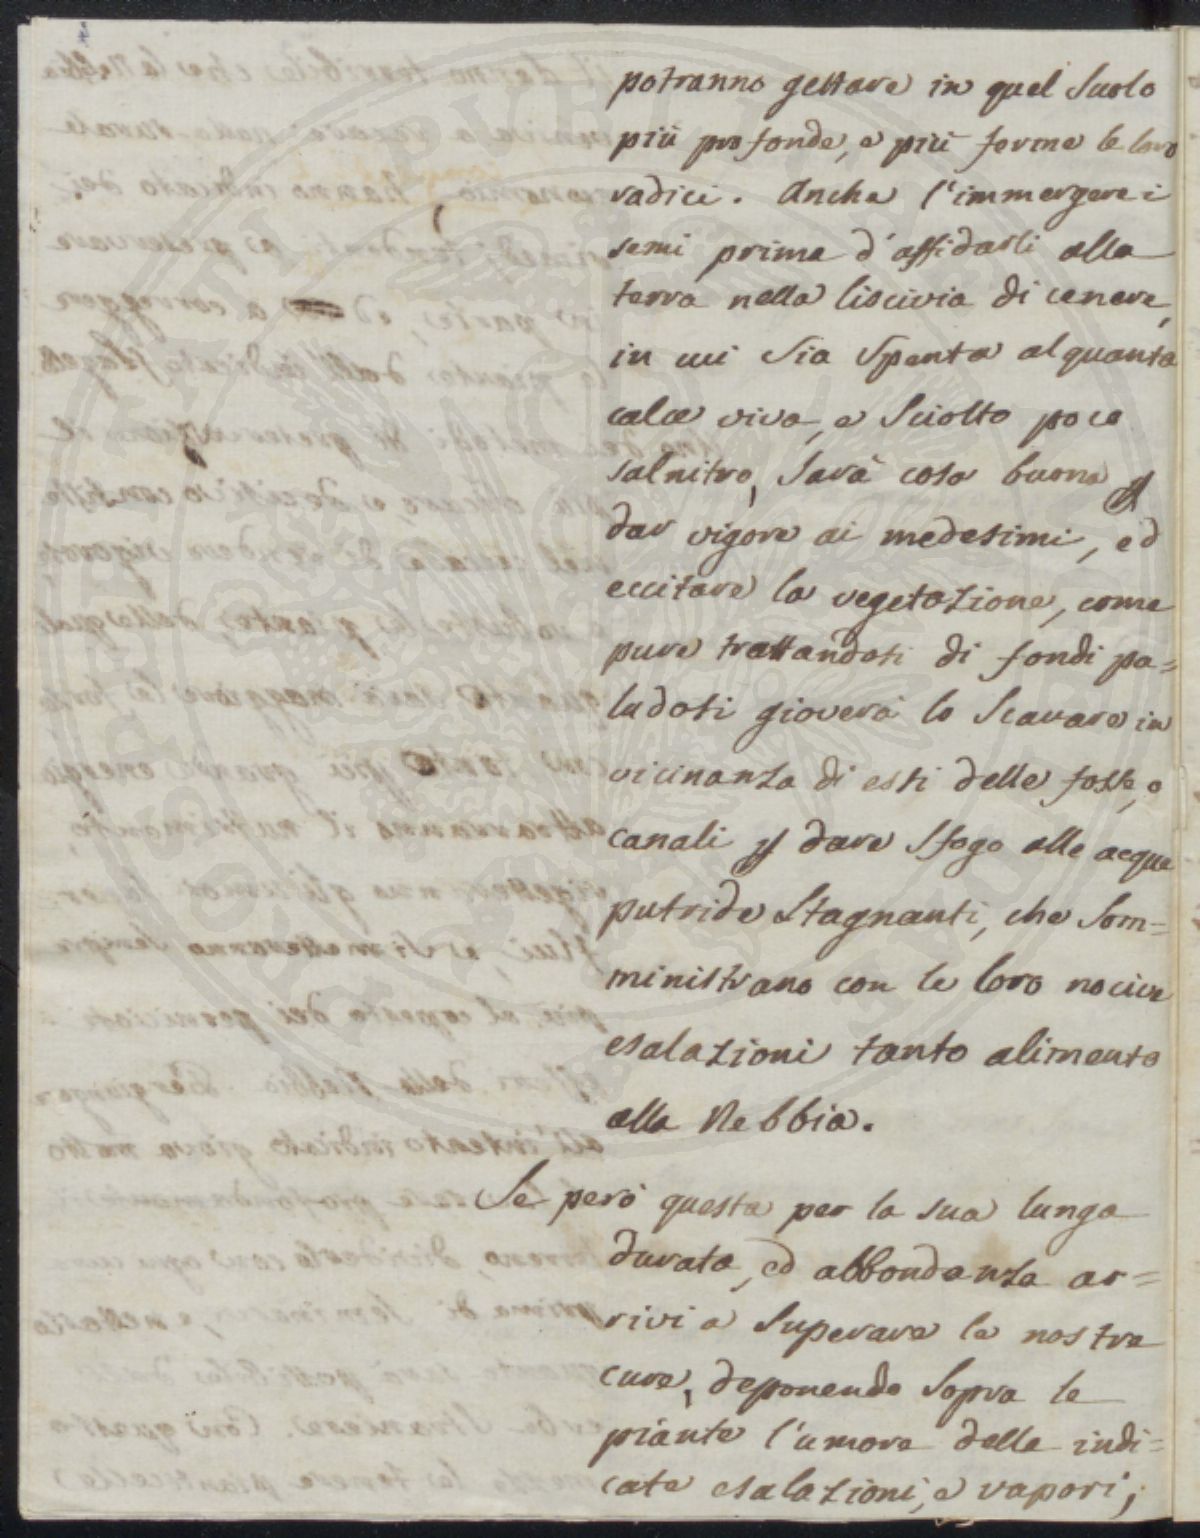 potranno gettare in quel Suolo
più profonde, e più ferme le loro
radici. Anche l'immergere i
semi prima d'affidarli alla
terra nella liscivia di cenere,
in cui Sia Spenta alquanta
calce viva, e Sciolto poco
salnitro, Sarà cosa buona p
dar vigore ai medesimi, ed
eccitare la vegetazione, come
pure trattandosi di fondi pa=
ludosi gioverà lo Scavare in
vicinanza di essi delle fosse, o
canali p dare Sfogo alle acque
putride Stagnanti, che Som=
ministrano con le loro nocive
esalazioni tanto alimento
alla Nebbia.
Se però questa per la sua lunga
durata, ed abbondanza ar=
rivi a Superare le nostre
cure, deponendo Sopra le
piante l'umore delle indi=
cate esalazioni, e vapori;